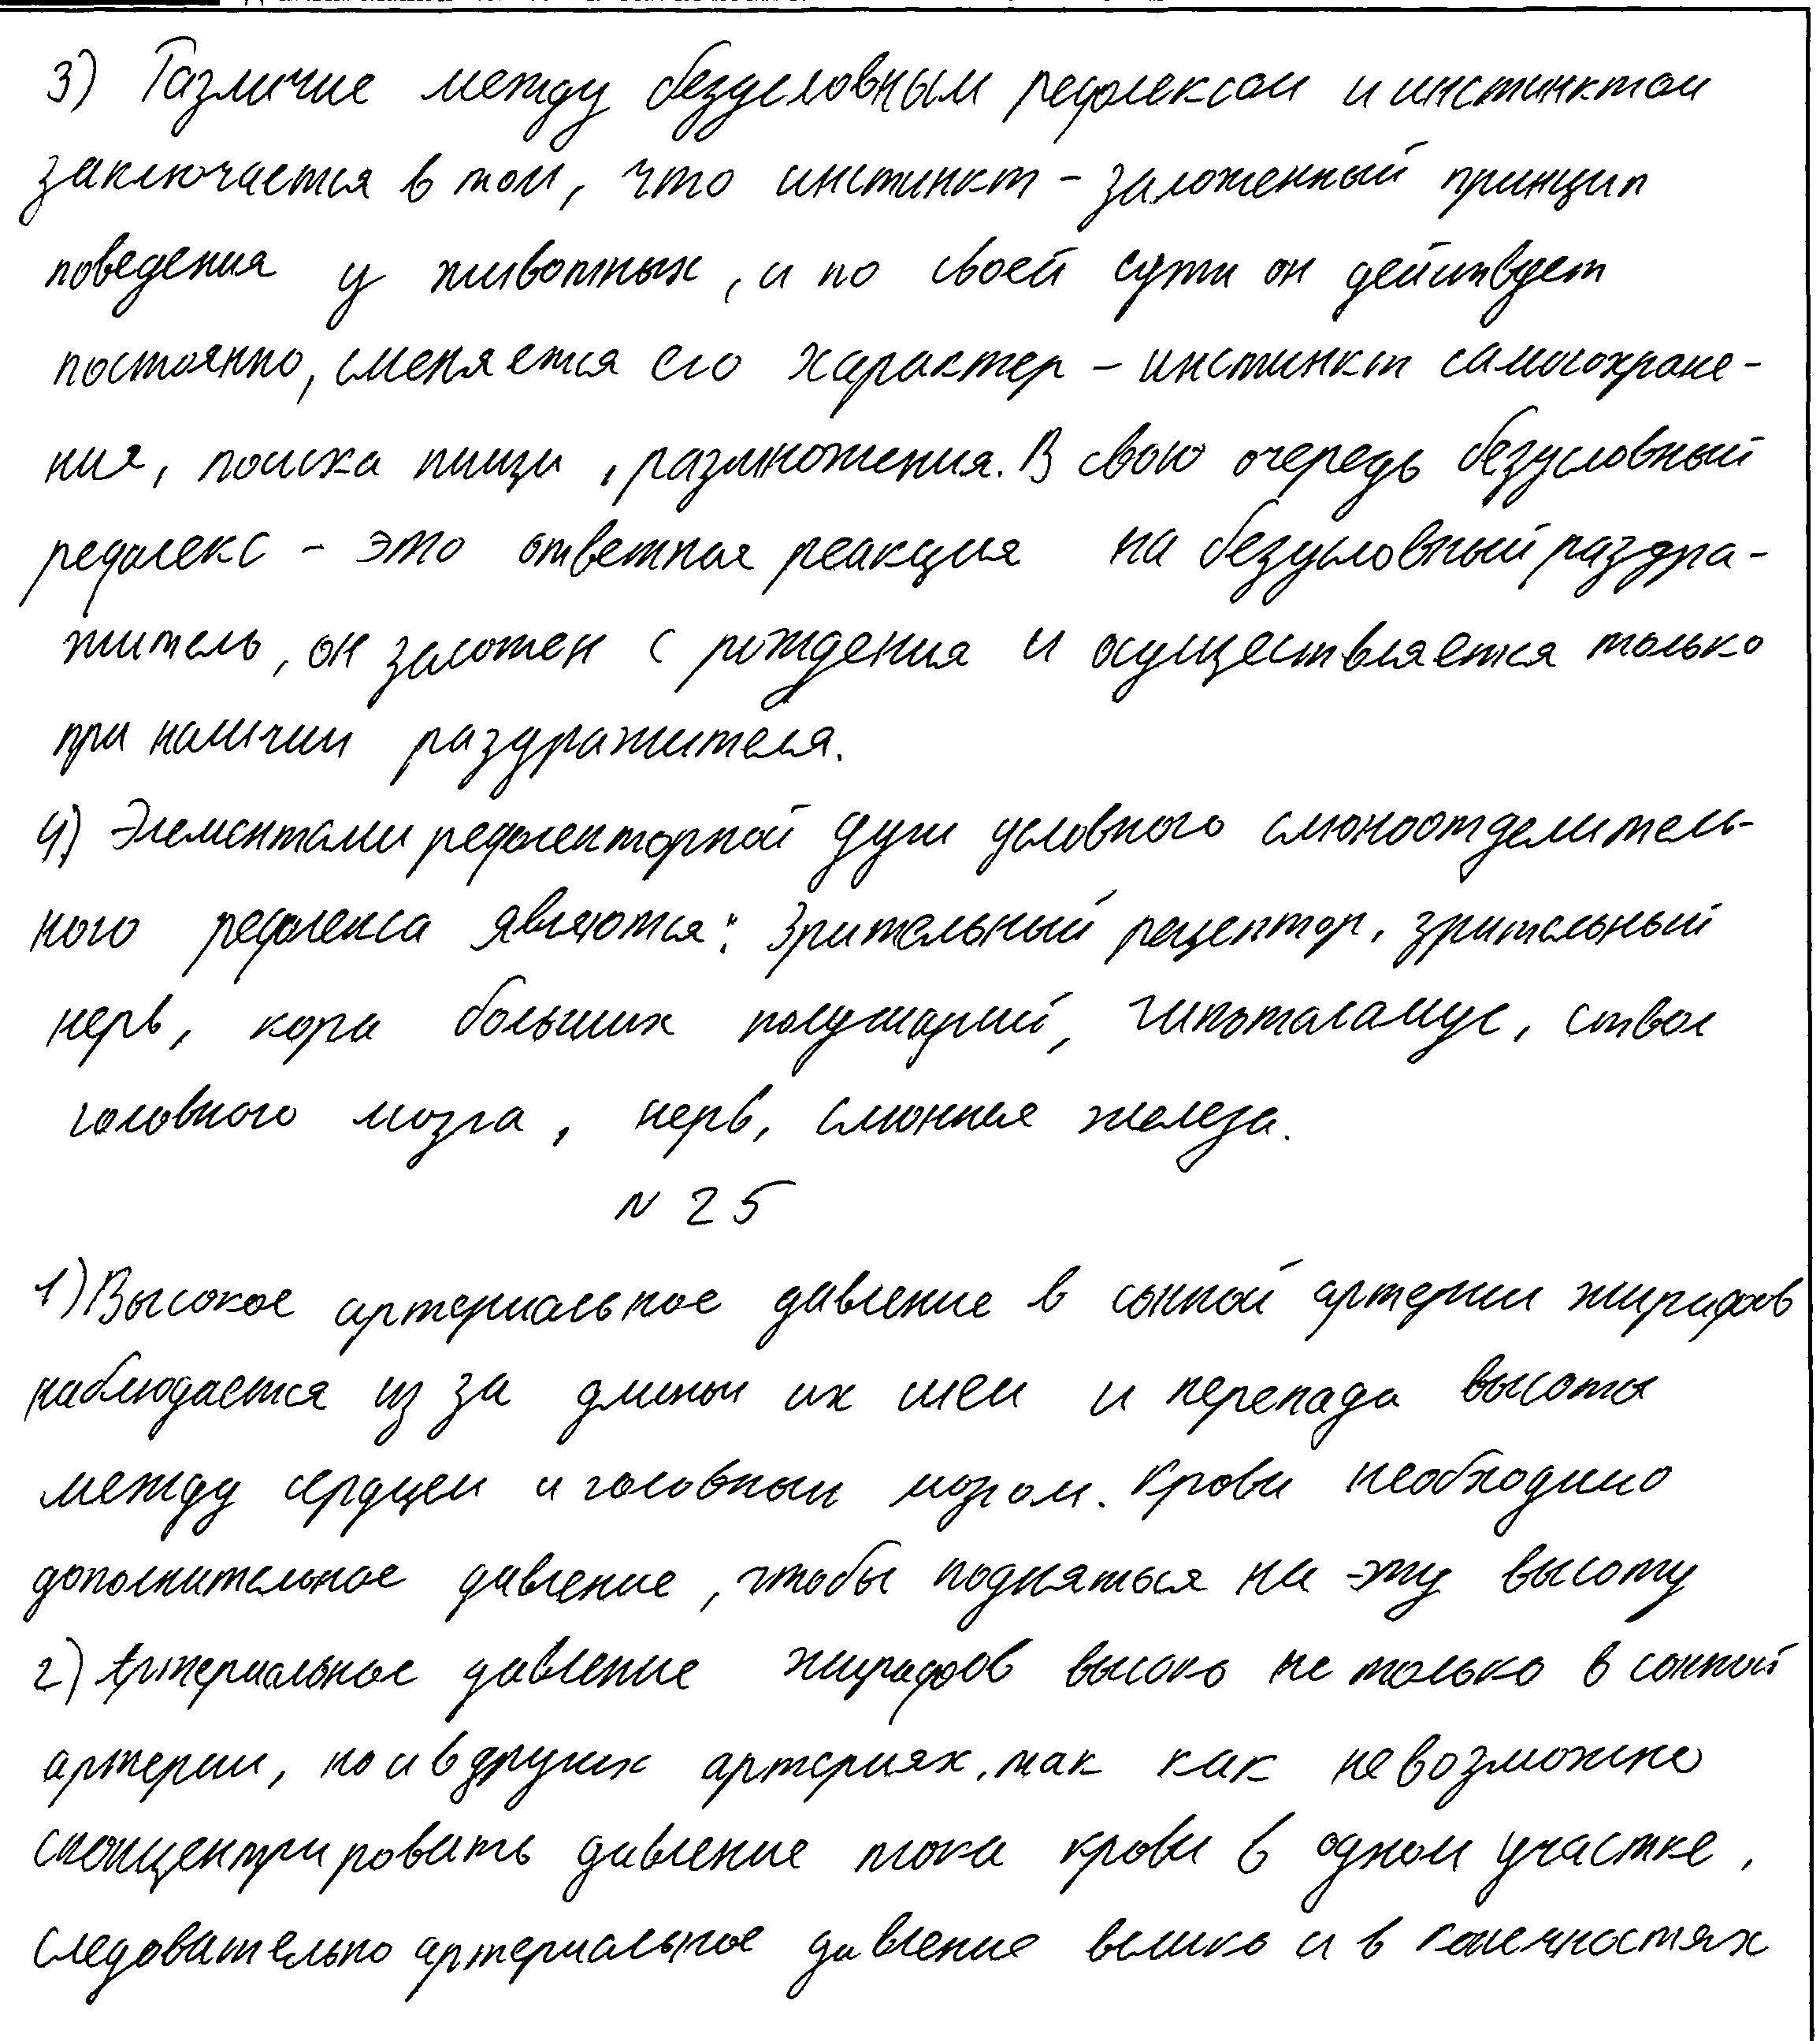 3) Различие между безусловным рефлексом и инстинктом
заключается в том, что инстинкт - заложенный принцип
поведения у животных, и по своей сути он действует
постоянно, сменяется его характер - инстинкт самосохране-
ния, поиска пищи, размножения. В свою очередь безусловный
рефлекс - это ответная реакция на безусловный раздра-
житель, он заложен с рождения и осуществляется только
при наличии раздражителя.
4) Элементами рефлекторной дуги условного слюноотделитель-
ного рефлекса являются: зрительный рецептор, зрительный
нерв, кора больших полушарий, гипоталамус, ствол
головного мозга, нерв, слюнная железа.
N 25
1) Высокое артериальное давление в сонной артерии жирафов
наблюдается из за длины их шеи и перепада высоты
между сердцем и головным мозгом. Крови необходимо
дополнительное давление, чтобы подняться на эту высоту
2) Артериальное давление жирафов высоко не только в сонной
артерии, но и в других артериях, так как невозможно
сконцентрировать давление тока крови в одном участке,
следовательно артериальное давление велико и в конечностях